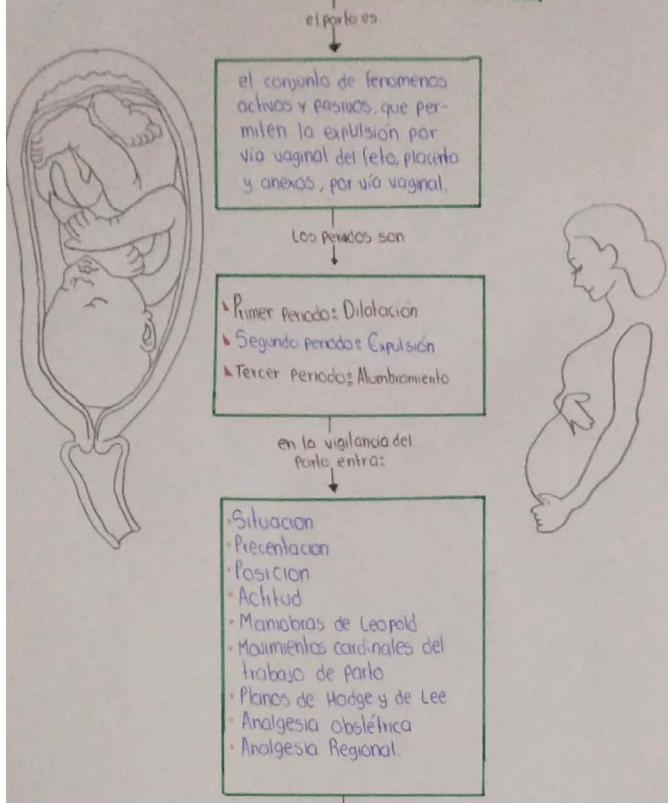 el parto es
el conjunto de fenomenos
activos y pasivos, que per-
miten la expulsión por
vía vaginal del feto, placenta
y anexos, por vía vaginal.
Los periodos son
Primer periodo: Dilatación
Segundo periodo: Expulsión
Tercer periodo: Alumbramiento
en la vigilancia del
Parto entra:
Situacion
Precentacion
Posicion
Actitud
Maniobras de Leopold
Movimientos cardinales del
trabajo de parto
Planos de Hodge y de Lee
Analgesia obstétrica
Analgesia Regional.